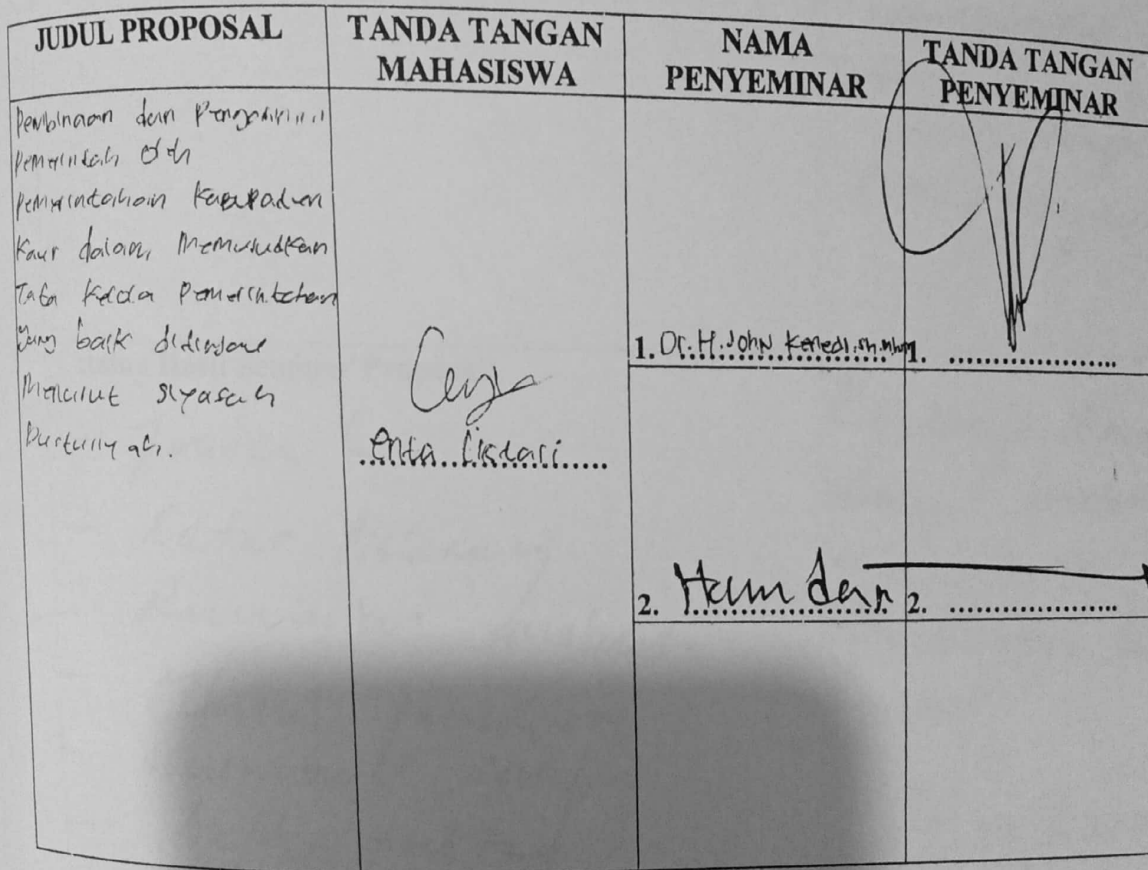 JUDUL PROPOSAL
TANDA TANGAN
MAHASISWA
NAMA
PENYEMINAR
TANDA TANGAN
PENYEMINAR
Pembinaan dan
Pemerintah Oleh
Pemerintahan Kabupaten
Kaur dalam Memwujudkan
Tata Kelola Pemerintahan
yang baik
Menurut siyasah
Dusturiyah.
1. Dr. H. John Kenedi, SH. MHum
1. ....................
2. Hamdan
2. ....................